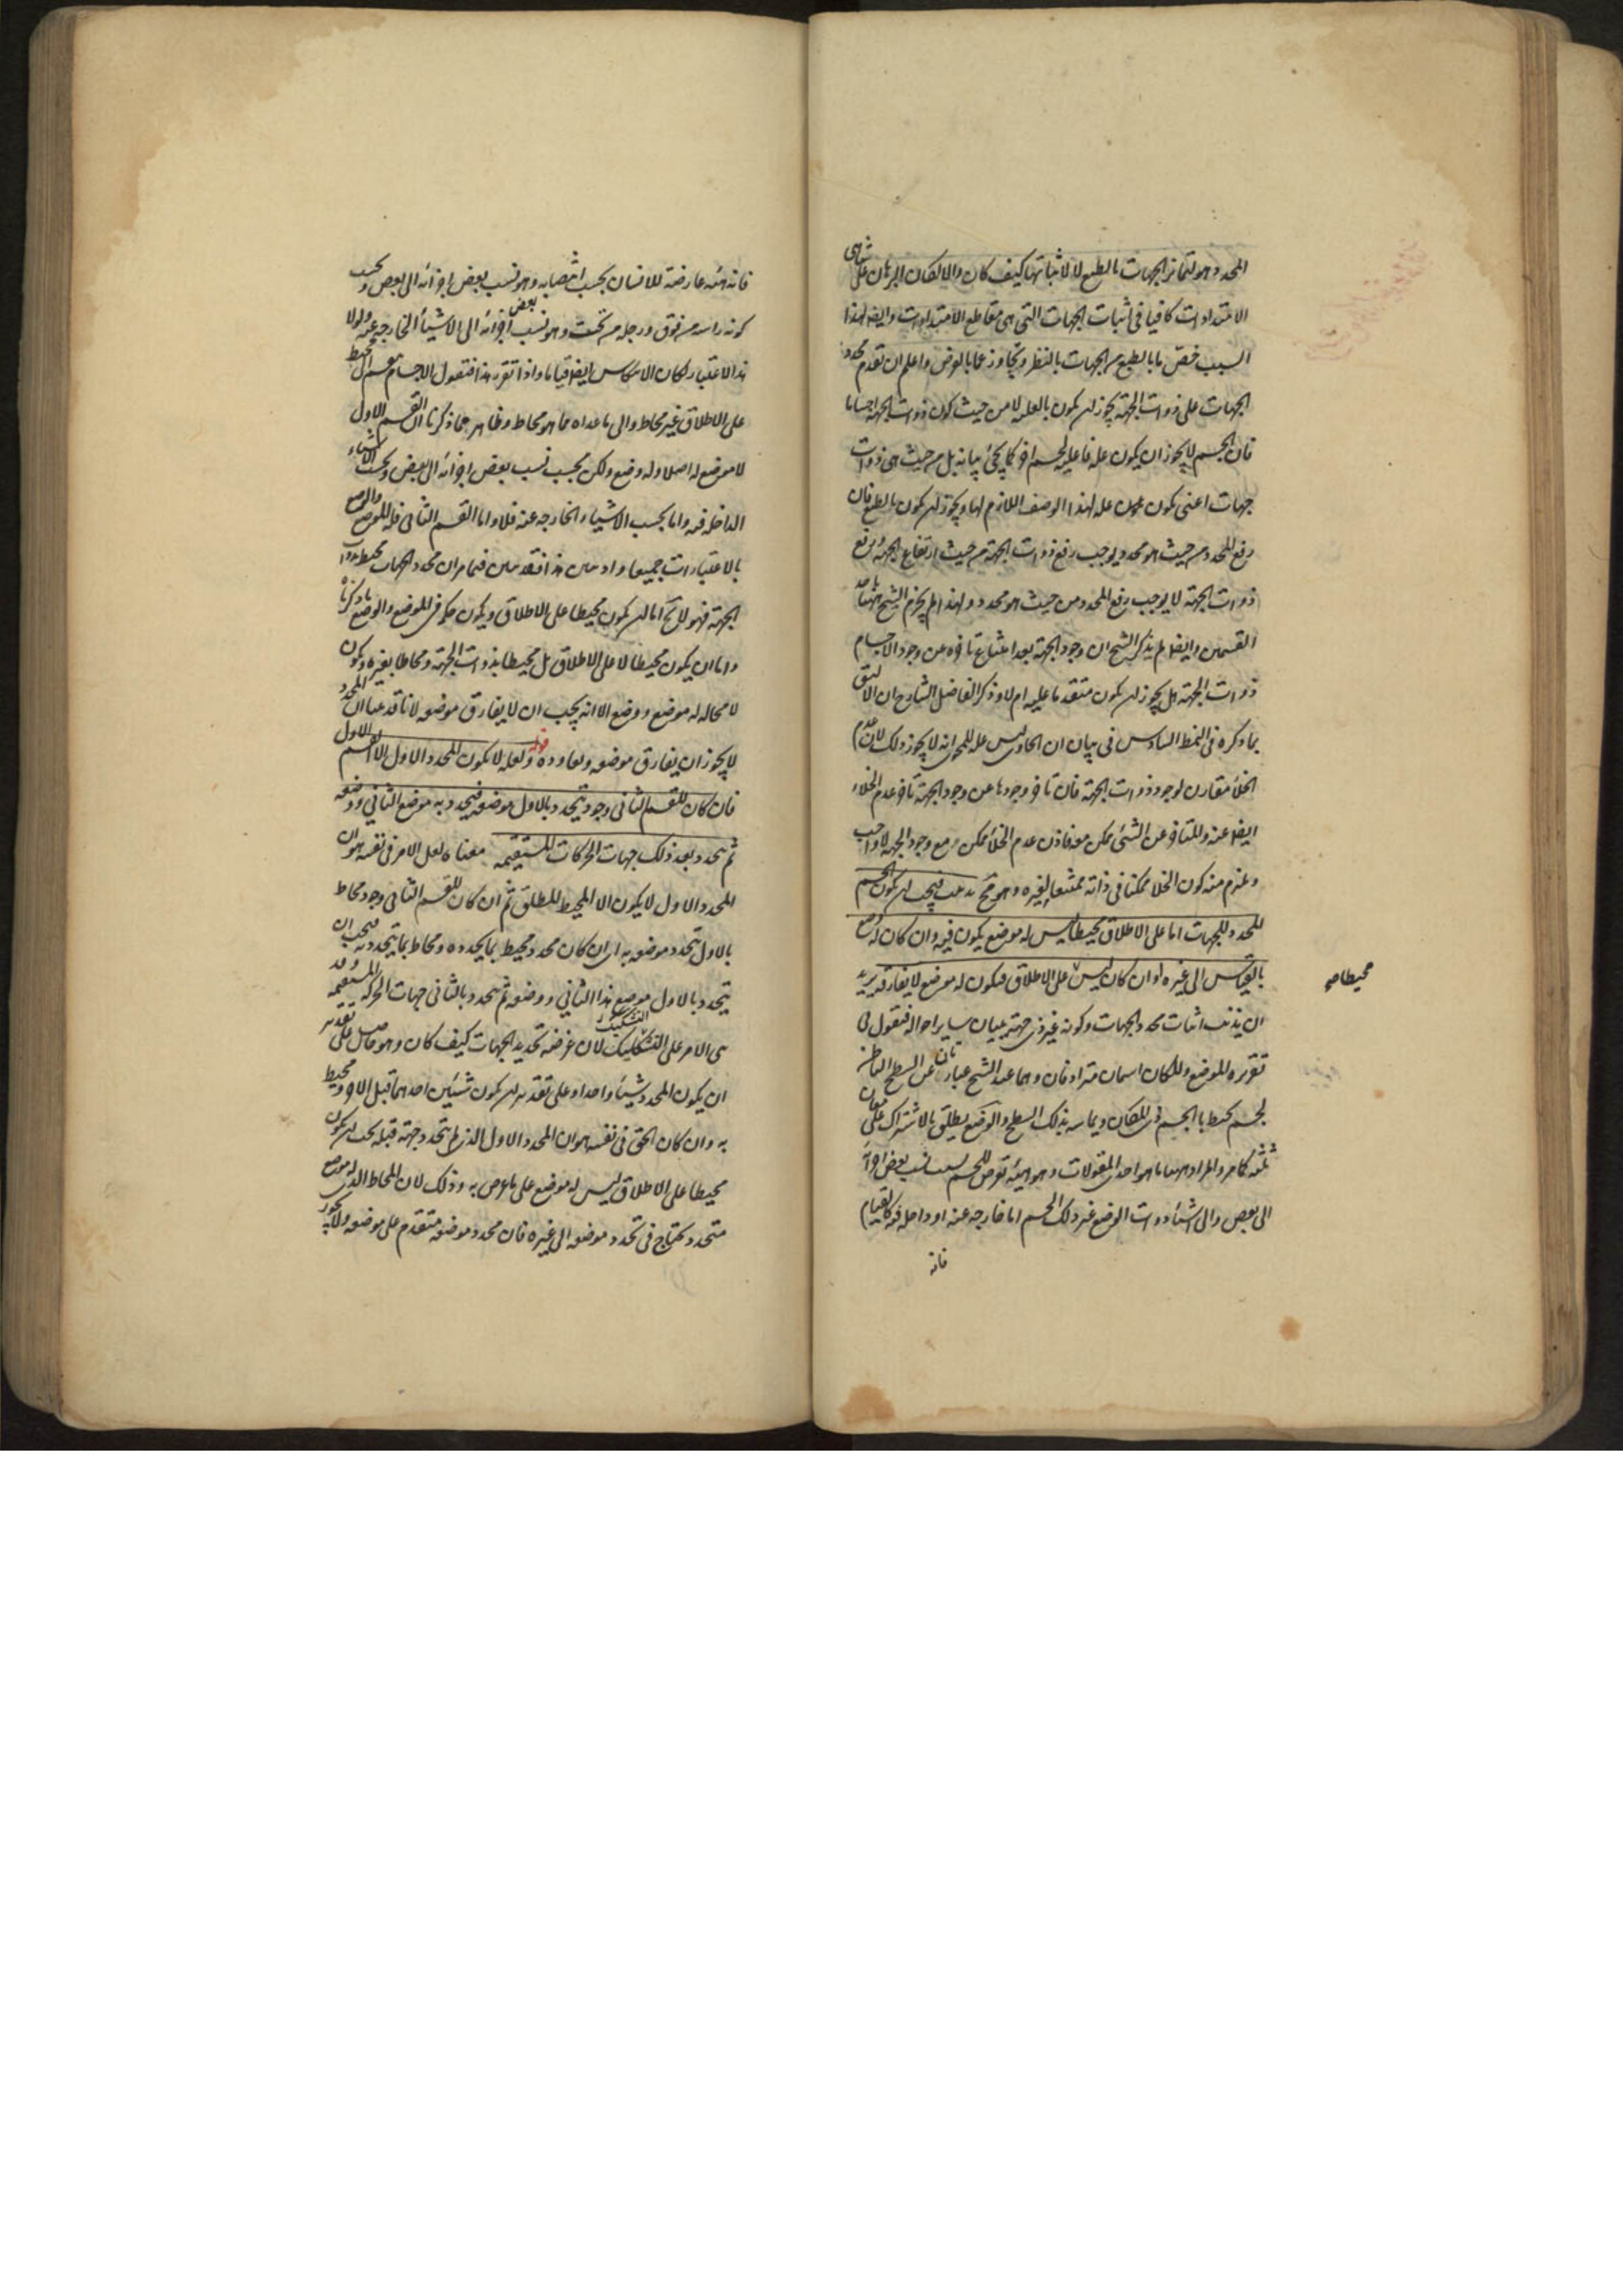 المحدد هو لتمايز الجهات بالطبع لا لاثباتها كيف كان والا لكان البرهان على تناهى
الامتدادات كافيا فى اثبات الجهات التى هى مقاطع الامتدادات وايضا لهذا
السبب خص ما بالطبع من الجهات بالنظر وتجاوز عما بالعرض واعلم ان تقدم محدد
الجهات على ذوات الجهة يجوز ان يكون بالعليه لا من حيث كون ذوات الجهة اجساما
فان الجسم لا يجوز ان يكون علة فاعليه لجسم اخر كما يجئ بيانه بل من حيث هى ذوات
جهات اعنى يكون علة لهذا الوصف اللازم لها ويجوز ان يكون بالطبع فان
رفع المحدد من حيث هو محدد يوجب رفع ذوات الجهة من حيث ارتفاع الجهة ورفع
ذوات الجهة لا يوجب رفع المحدد من حيث هو محدد ولهذا لم يجزم الشيخ ههنا باحد
القسمين وايضا لم يذكر الشيخ ان وجود الجهة بعد امتناع تاخره عن وجود الاجسام
ذوات الجهة هل يجوز ان يكون متقدما عليه ام لا وذكر الفاضل الشارح ان الاليق
بما ذكره فى النمط السادس فى بيان ان الحاوى ليس علة للمحوى انه لا يجوز ذلك لان عدم
الخلأ مقارن لوجود ذوات الجهة فان تاخر وجودها عن وجود الجهة تاخر عدم الخلاء
ايضا عنه والمتاخر عن الشئ ممكن معه فاذن عدم الخلأ ممكن مع وجود الجهة لا واجب
ويلزم منه كون الخلا ممكنا فى ذاته ممتنعا لغيره وهو مح فيجب ان يكون الجسم
المحدد للجهات اما على الاطلاق محيطا ليس له موضع يكون فيه وان كان له وضع
بالقياس الى غيره او ان كان ليس على الاطلاق فيكون له موضع لا يفارقه يريد
محيطا صح
ان يذنب اثبات محدد الجهات وكونه غير ذى جهة ببيان ساير احواله فنقول فى
تقريره الموضع والمكان اسمان مترادفان وهما عند الشيخ عبارتان عن السطح الباطن
لجسم يحيط بالجسم ذى المكان ويماسه بذلك السطح والوضع يطلق بالاشتراك على معان
ثلثة كما مر والمراد ههنا ما هو احدى المقولات وهو هيئة تعرض للجسم بسبب نسب بعض اجزائه
الى بعض والى اشياء ذوات الوضع غير ذلك الجسم اما خارجه عنه او داخله فيه كالقيام
فانه
فانه هيئة عارضة للانسان بحسب انتصابه وهو نسب بعض اجزائه الى بعض وبحسب
كون راسه من فوق ورجله من تحت وهو نسب بعض اجزائه الى الاشياء الخارجه عنه ولولا
هذا الاعتبار لكان الانتكاس ايضا قياما واذا تقرر هذا فنقول الاجسام تنقسم الى محيط
على الاطلاق غير محاط والى ما عداه مما هو محاط وظاهر مما ذكرنا ان القسم الاول
لا موضع له اصلا وله وضع ولكن بحسب نسب بعض اجزائه الى بعض وبحسب الاشياء
الداخله فيه واما بحسب الاشياء الخارجه عنه فلا واما القسم الثانى فله الموضع والوضع
بالاعتبارات جميعا واذ تبين هذا فقد تبين فيما مر ان محدد الجهات محيط بذوات
الجهة فهو لا يخ اما ان يكون محيطا على الاطلاق ويكون حكمه فى الموضع والوضع ما ذكرناه
واما ان يكون محيطا لا على الاطلاق بل محيطا بذوات الجهة ومحاطا بغيره ويكون
لا محاله له موضع ووضع الا انه يجب ان لا يفارق موضعه لانا قد بينا ان المحدد
لا يجوز ان يفارق موضعه ويعاوده قوله ولعله لا يكون المحدد الاول الا القسم الاول
فان كان للقسم الثانى وجود يتحدد بالاول موضعه فيتحدد به موضع الثانى ووضعه
ثم يتحدد بعد ذلك جهات الحركات المستقيمه معناه لعل الامر فى نفسه هو ان
المحدد الاول لا يكون الا المحيط المطلق ثم ان كان للقسم الثانى وجود محاط
بالاول يتحدد موضعه به اى ان كان محدد محيط بما يحدده ومحاط بما يتحدد به فيجب ان
يتحدد بالاول موضع هذا الثانى ووضعه ثم يتحدد بالثانى جهات الحركة المستقيمه وقد
بنى الامر على التشكيك لان غرضه تحديد الجهات كيف كان وهو حاصل على تقدير
التشكيك
ان يكون المحدد شيئا واحدا وعلى تقدير ان يكون شيئين احدهما قبل الاخر ومحيط
به وان كان الحق فى نفسه هو ان المحدد الاول الذى لم يتحدد جهة قبله يجب ان يكون
محيطا على الاطلاق ليس له موضع على ما عرض به وذلك لان المحاط الذى له موضع
متحدد يحتاج فى تحدد موضعه الى غيره فان محدد موضعه متقدم على موضعه ولا يجوز